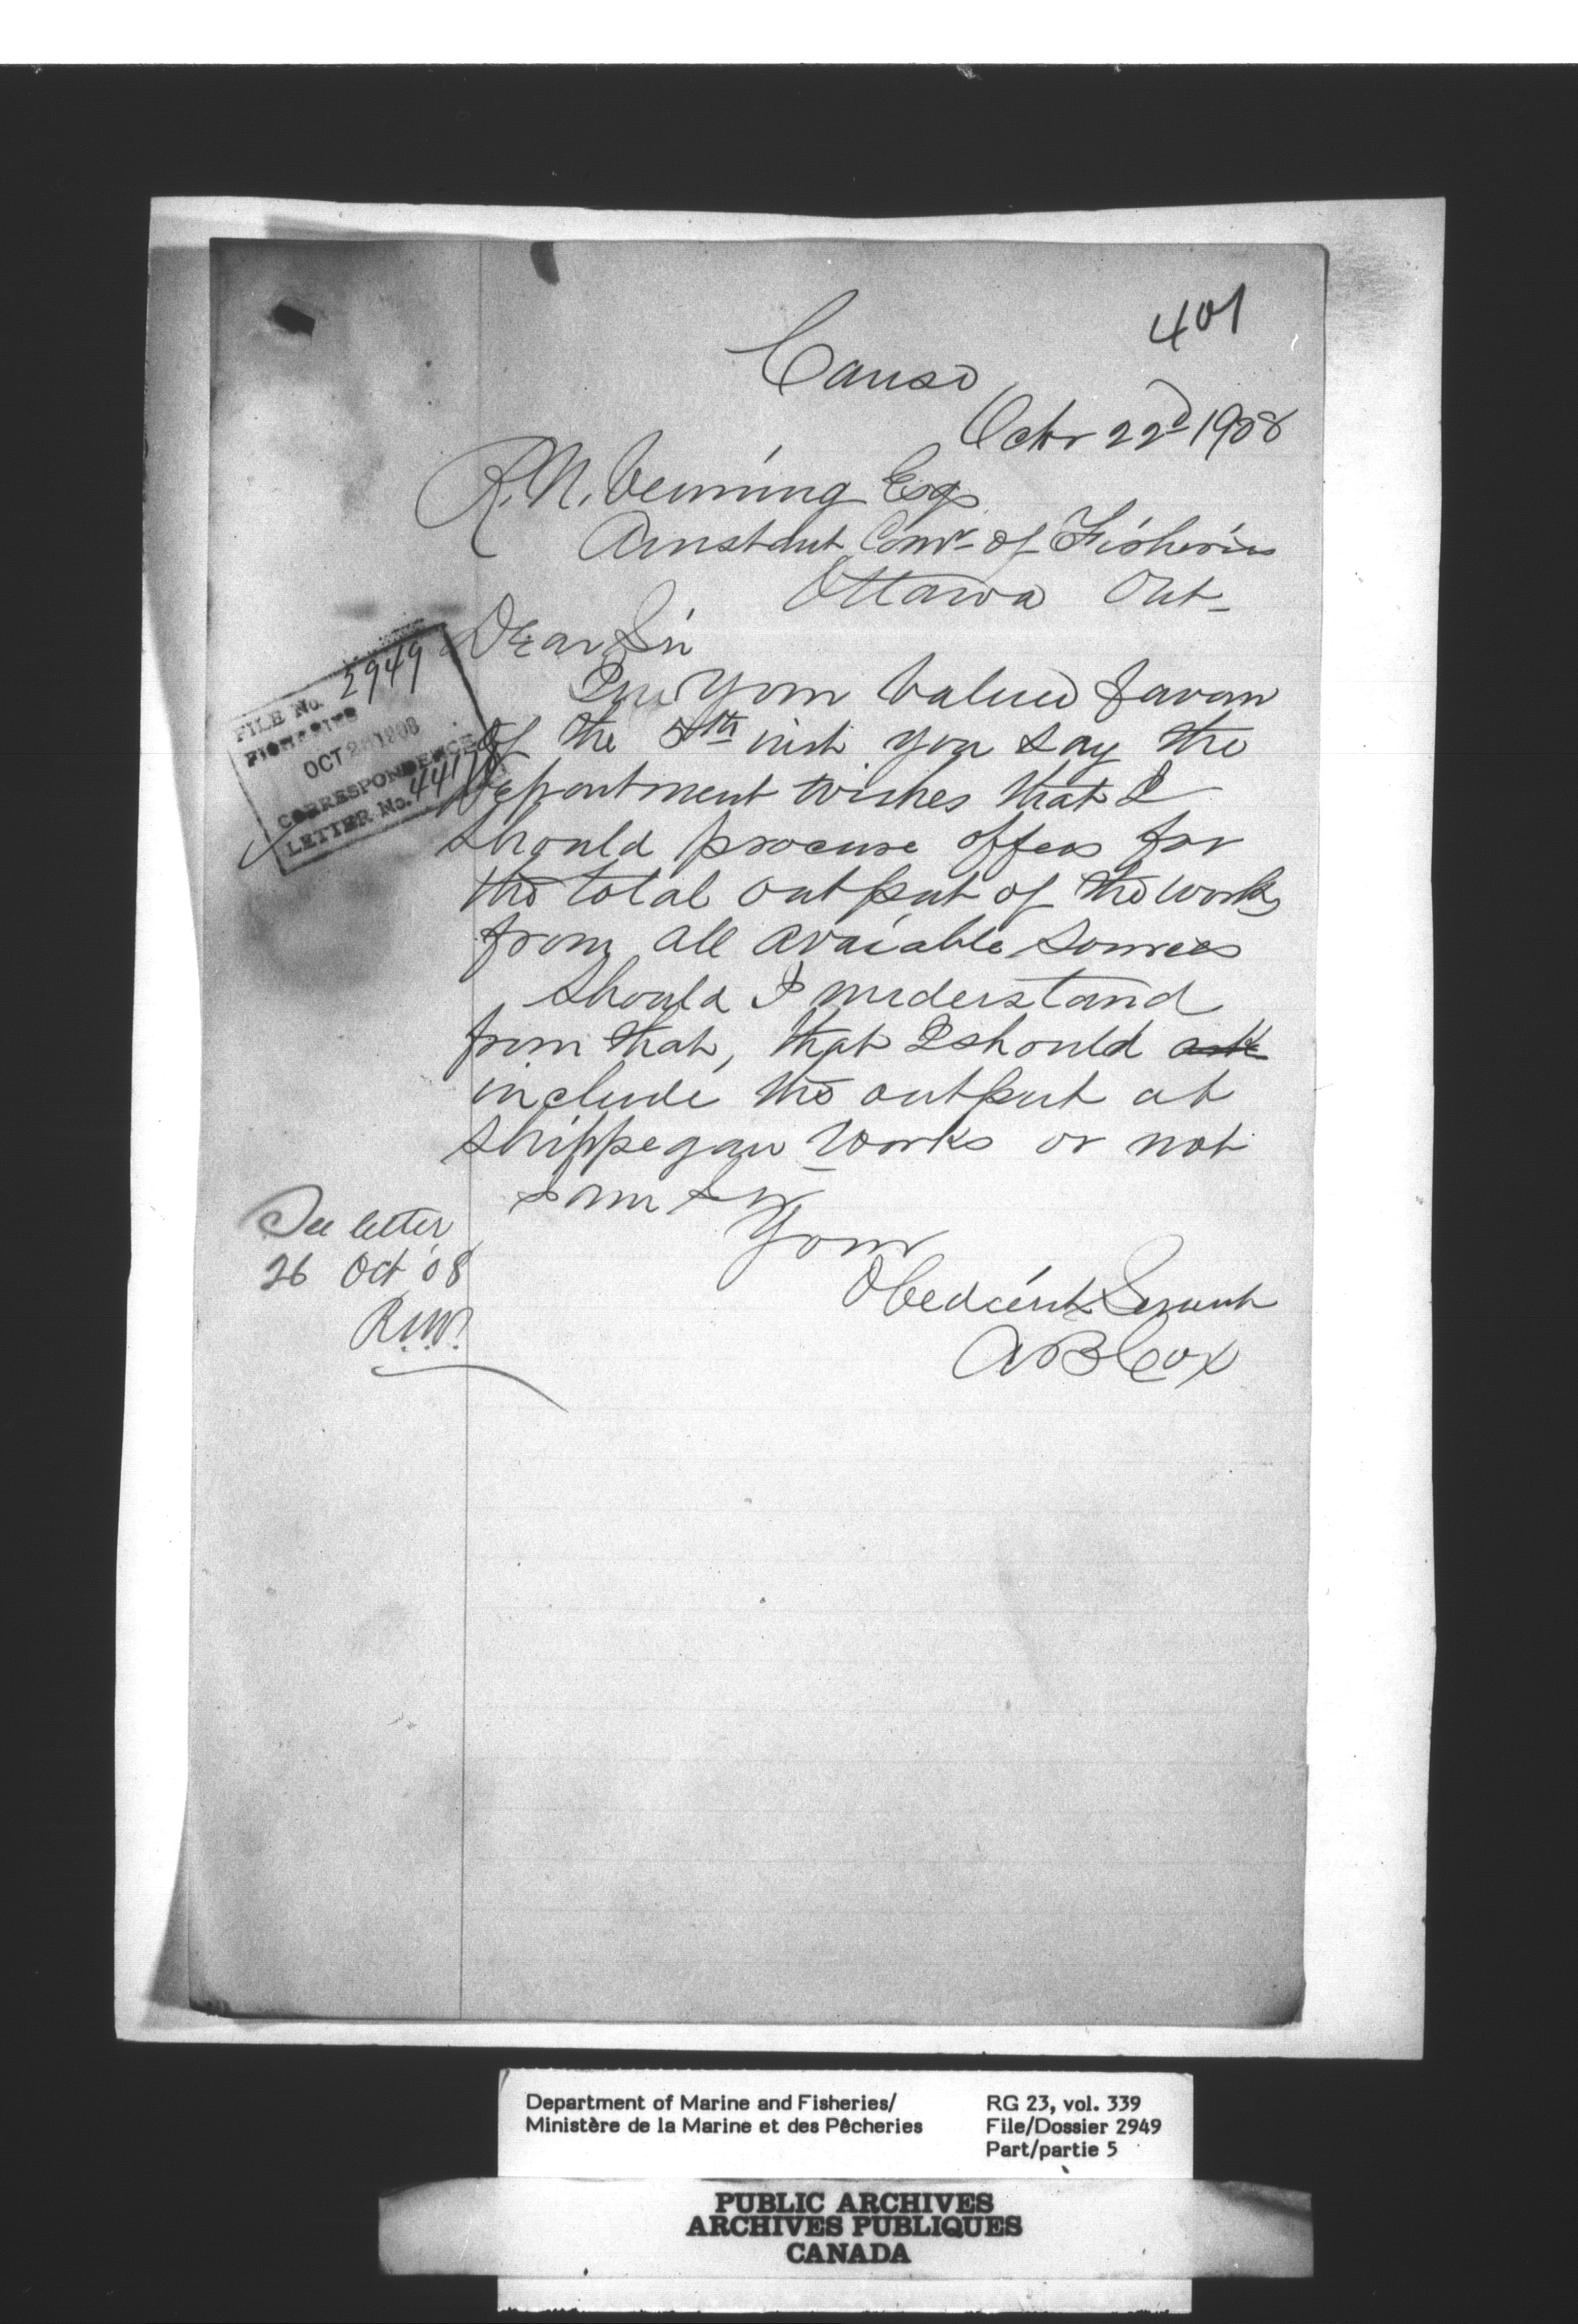 401
Canso
Octbr 22d 1908
R. N. Venning Esq
Assistant Comr of Fisheries
Ottawa Ont-
Dear Sir
In your valued favour
of the 5th inst you say the
Department wishes that I
should procure offers for
the total output of the works
from all avaiable sources
Should I understand
from that, that I should ask
include the output at
Shippegan Works or not
I am Sir
Your
Obedient Servant
A B Cox
FILE No. 2949
FISHERIES
OCT 1908
CORRESPONDENCE
LETTER No.
See letter
26 Oct '08
R.N.V.
Department of Marine and Fisheries/
Ministère de la Marine et des Pêcheries
RG 23, vol. 339
File/Dossier 2949
Part/partie 5
PUBLIC ARCHIVES
ARCHIVES PUBLIQUES
CANADA